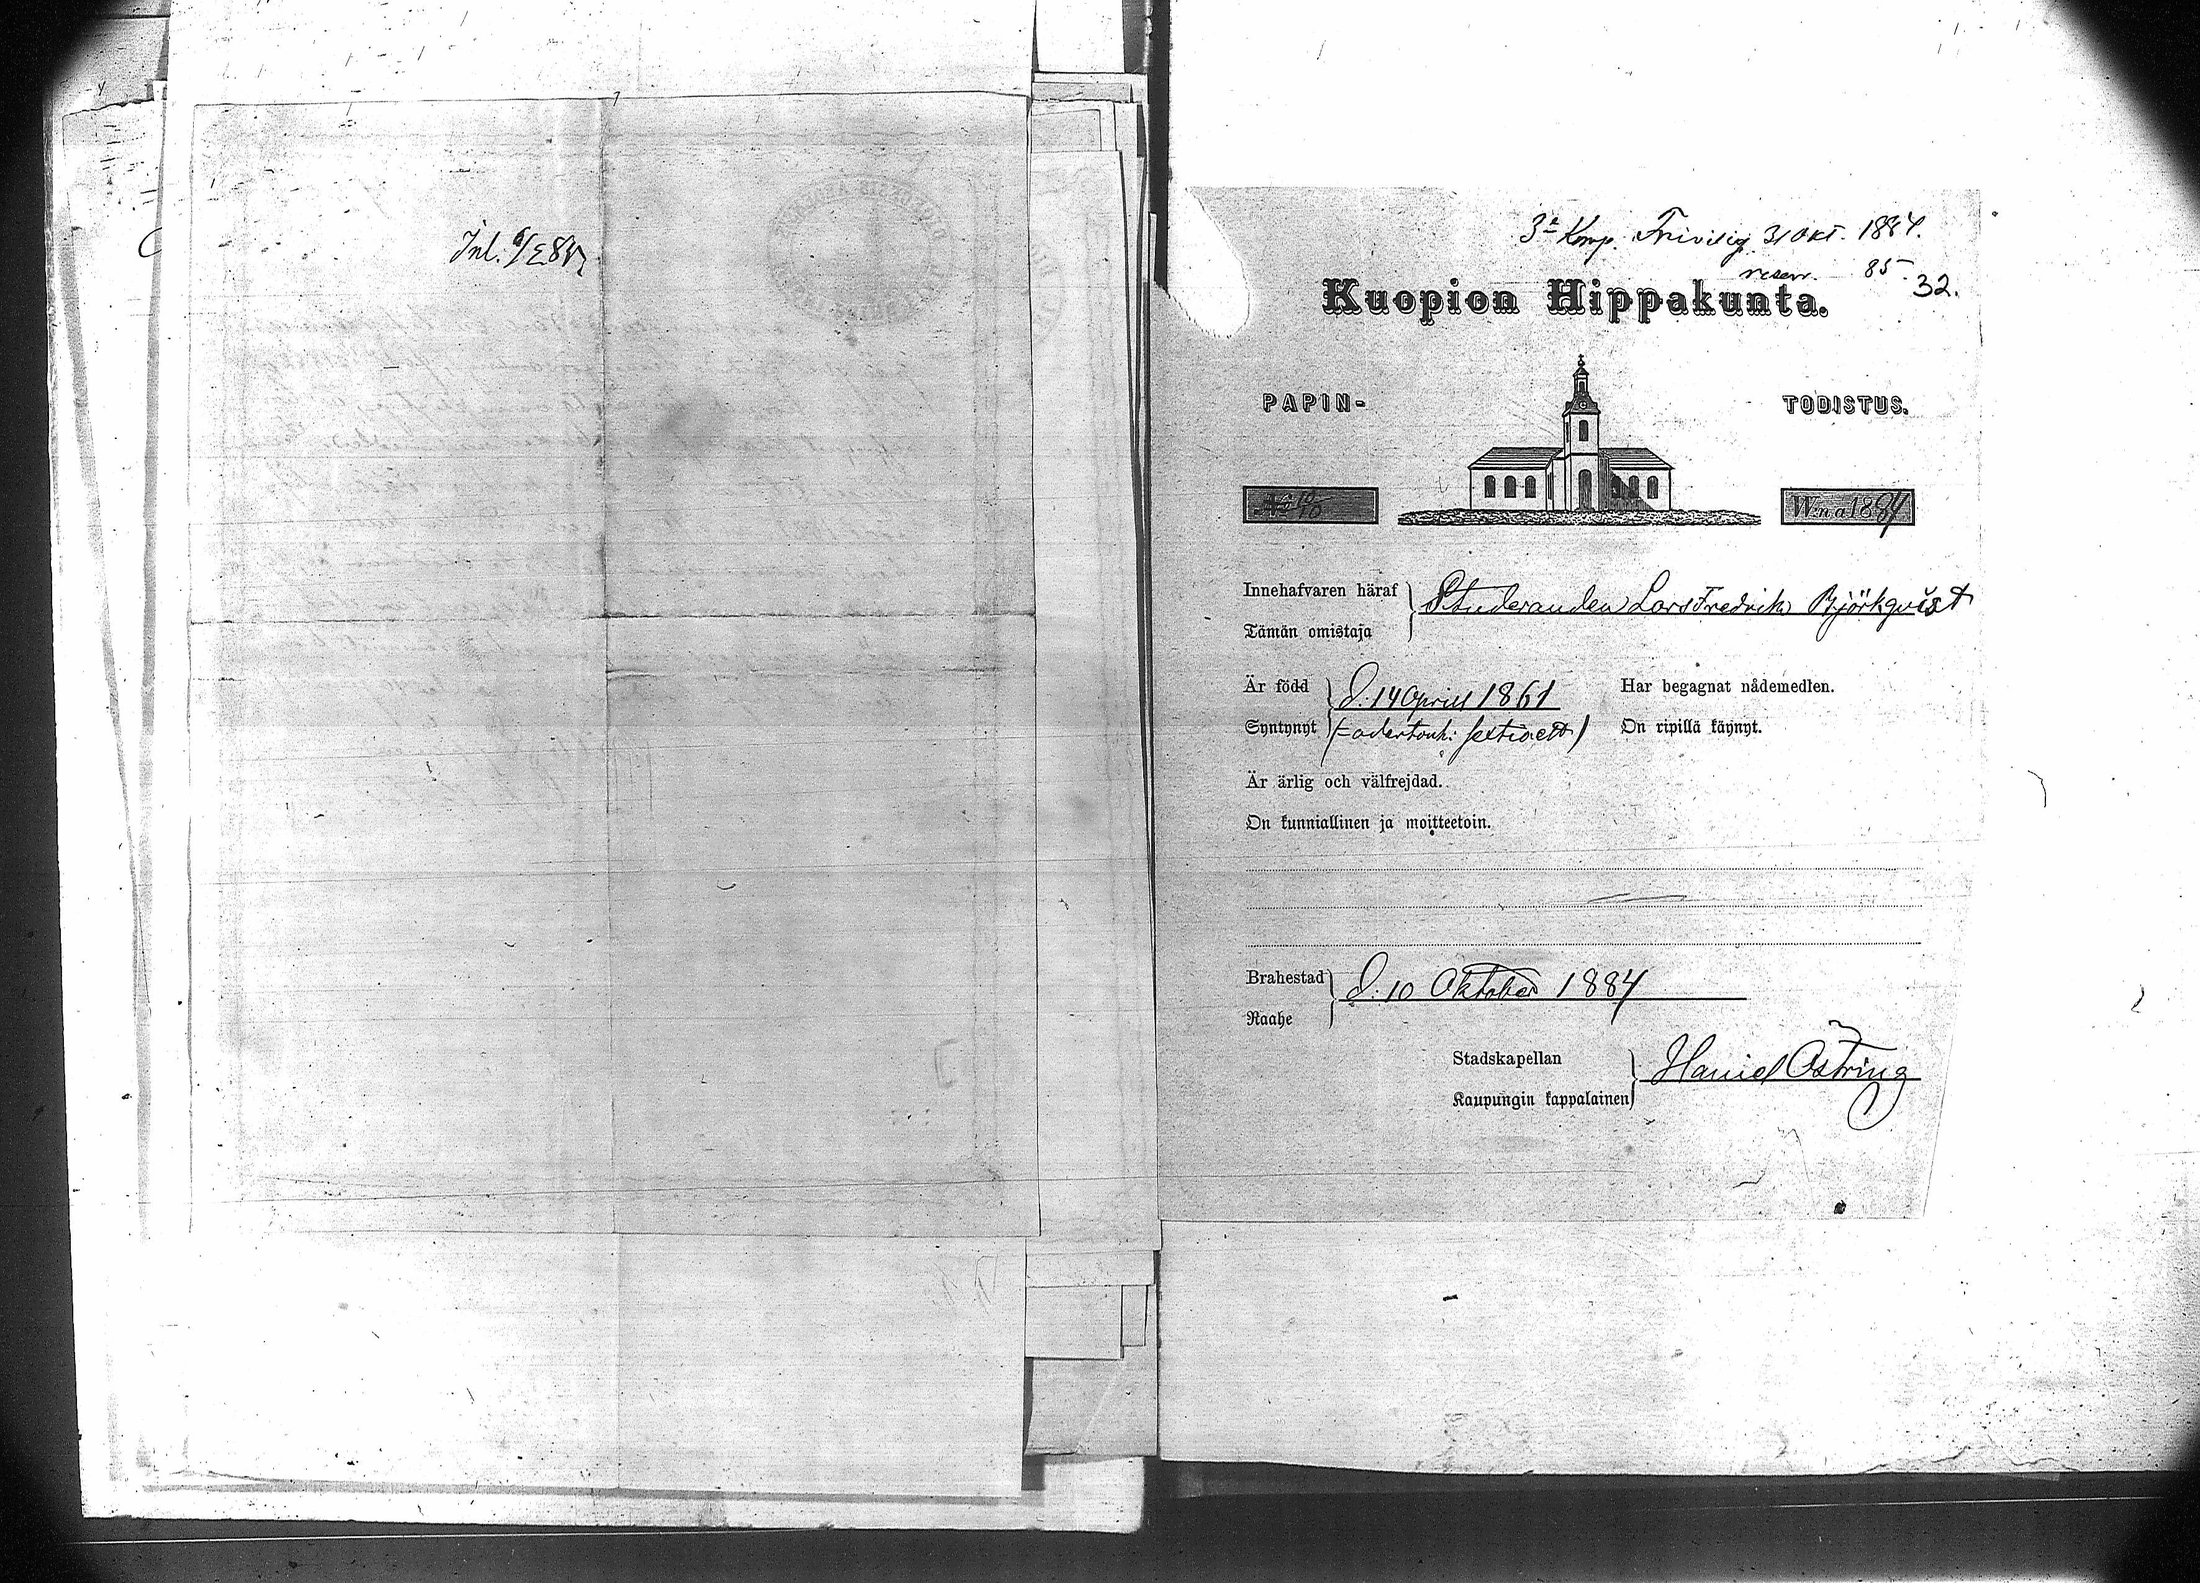 Inl. 6/3 87
3e Komp. Frivilig 31 Okt. 1884.
reserv. 85.
32.
Kuopion Hippakunta.
PAPIN- TODISTUS.
No 10/10 W:na 1884
Innehafvaren häraf Studeranden Lars Fredrik Björkqvist
Tämän omistaja
Är född d. 14 April 1861 Har begagnat nådemedlen.
Syntynyt On ripillä käynyt.
Är ärlig och välfrejdad.
On kunniallinen ja moitteetoin.
Brahestad d. 10 Oktober 1884
Raahe
Stadskapellan Haniel Östring
Kaupungin kappalainen